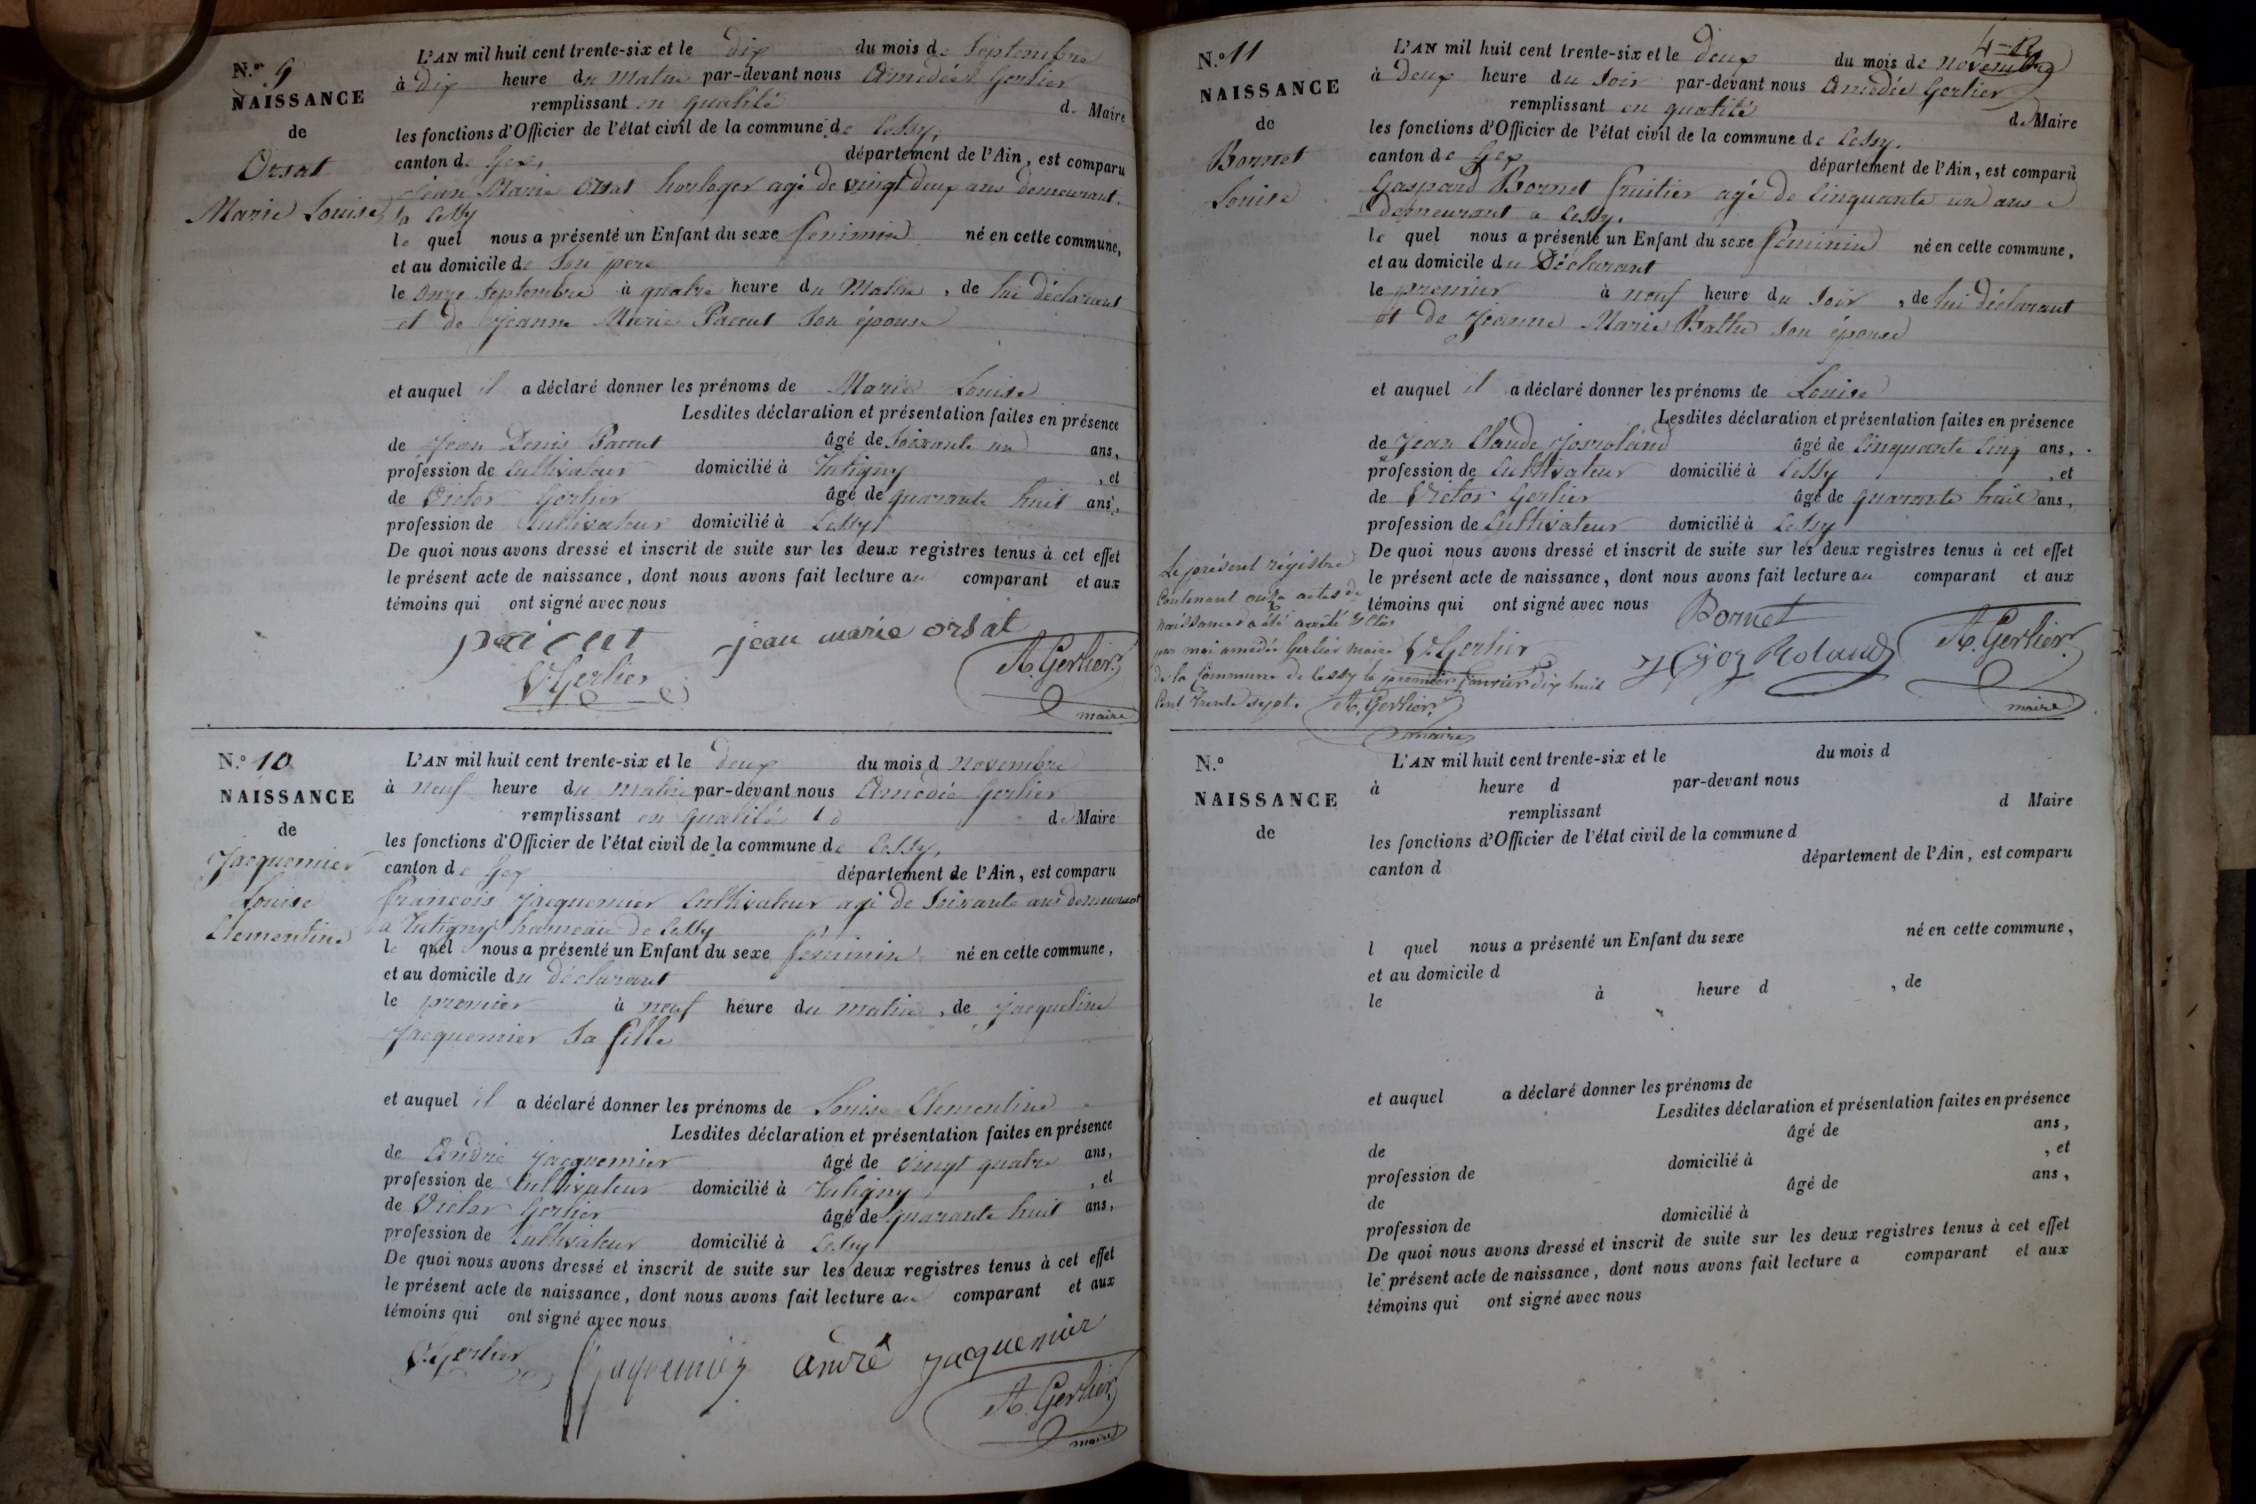 N.° 9
NAISSANCE
de
Orsat
Marie Louise
L'AN mil huit cent trente-six et le dix du mois de Septembre
à dix heure du matin par-devant nous Amédée Gerlier
remplissant en qualité de Maire
les fonctions d'Officier de l'état civil de la commune de Cessy,
canton de Gex, département de l'Ain, est comparu
Jean Marie Orsat horloger agé de vingt deux ans demeurant
à Cessy
le quel nous a présenté un Enfant du sexe féminin né en cette commune,
et au domicile de son père
le onze Septembre à quatre heure du Matin, de lui déclarant
et de Jeanne Marie Pacout son épouse
et auquel il a déclaré donner les prénoms de Marie Louise
Lesdites déclaration et présentation faites en présence
de Jean Denis Pacout âgé de soixante un ans,
profession de Cultivateur domicilié à Tutigny, et
de Victor Gerlier âgé de quarante huit ans,
profession de Cultivateur domicilié à Cessy
De quoi nous avons dressé et inscrit de suite sur les deux registres tenus à cet effet
le présent acte de naissance, dont nous avons fait lecture au comparant et aux
témoins qui ont signé avec nous
jean marie orsat
V. Gerlier
A. Gerlier
maire
N.° 10
NAISSANCE
de
Jacquemier
Louise
Clementine
L'AN mil huit cent trente-six et le deux du mois d novembre
à neuf heure du matin par-devant nous Amédée Gerlier
remplissant en qualité de Maire
les fonctions d'Officier de l'état civil de la commune de Cessy,
canton de Gex département de l'Ain, est comparu
François Jacquemier Cultivateur agé de soixante ans demeurant
à Tutigny hameau de Cessy
le quel nous a présenté un Enfant du sexe féminin né en cette commune,
et au domicile du déclarant
le premier à neuf heure du matin, de Jacqueline
Jacquemier sa fille
et auquel il a déclaré donner les prénoms de Louise Clementine
Lesdites déclaration et présentation faites en présence
de André Jacquemier âgé de vingt quatre ans,
profession de Cultivateur domicilié à Tutigny, et
de Victor Gerlier âgé de quarante huit ans,
profession de Cultivateur domicilié à Cessy
De quoi nous avons dressé et inscrit de suite sur les deux registres tenus à cet effet
le présent acte de naissance, dont nous avons fait lecture au comparant et aux
témoins qui ont signé avec nous
V. Gerlier Jaquemier andré jacquemier
A. Gerlier
maire
N.° 11
NAISSANCE
de
Bornet
Louise
L'AN mil huit cent trente-six et le deux du mois de novembre
à deux heure du soir par-devant nous Amédée Gerlier
remplissant en qualité de Maire
les fonctions d'Officier de l'état civil de la commune de Cessy.
canton de Gex département de l'Ain, est comparu
Gaspard Bornet fruitier agé de Cinquante un ans
demeurant a Cessy.
le quel nous a présenté un Enfant du sexe féminin né en cette commune,
et au domicile du Déclarant
le premier à neuf heure du soir, de lui déclarant
et de Jeanne Marie son épouse
et auquel il a déclaré donner les prénoms de Louise
Lesdites déclaration et présentation faites en présence
de Jean Claude âgé de Cinquante Cinq ans,
profession de Cultivateur domicilié à Cessy, et
de Victor Gerlier âgé de quarante huit ans,
profession de Cultivateur domicilié à Cessy
De quoi nous avons dressé et inscrit de suite sur les deux registres tenus à cet effet
le présent acte de naissance, dont nous avons fait lecture au comparant et aux
témoins qui ont signé avec nous
Bornet
V. Gerlier Roland A. Gerlier
maire
Le présent régistre
Contenant onze actes de
naissances a été arrêté & clos
par moi amédée Gerlier maire
de la Commune de Cessy le premier janvier dix huit
Cent Trente sept.
A. Gerlier
maire
N.°
NAISSANCE
de
L'AN mil huit cent trente-six et le du mois d
à heure d par-devant nous
remplissant d Maire
les fonctions d'Officier de l'état civil de la commune d
canton d département de l'Ain, est comparu
l quel nous a présenté un Enfant du sexe né en cette commune,
et au domicile d
le à heure d , de
et auquel a déclaré donner les prénoms de
Lesdites déclaration et présentation faites en présence
de âgé de ans,
profession de domicilié à , et
de âgé de ans,
profession de domicilié à
De quoi nous avons dressé et inscrit de suite sur les deux registres tenus à cet effet
le présent acte de naissance, dont nous avons fait lecture a comparant et aux
témoins qui ont signé avec nous